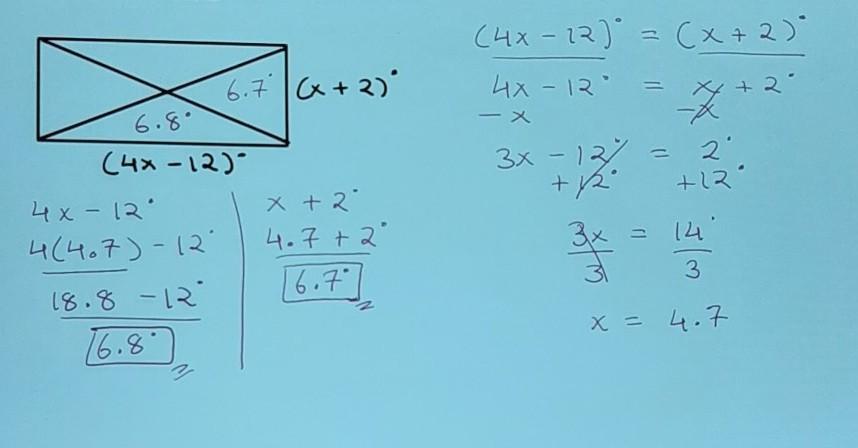 6.7°
(x + 2)°
6.8°
(4x - 12)°
4x - 12°
4(4.7) - 12°
18.8 - 12°
6.8°
x + 2°
4.7 + 2°
6.7°
(4x - 12)° = (x + 2)°
4x - 12° = x + 2°
- x - x
3x - 12° = 2°
+12° +12°
3x = 14°
3 3
x = 4.7